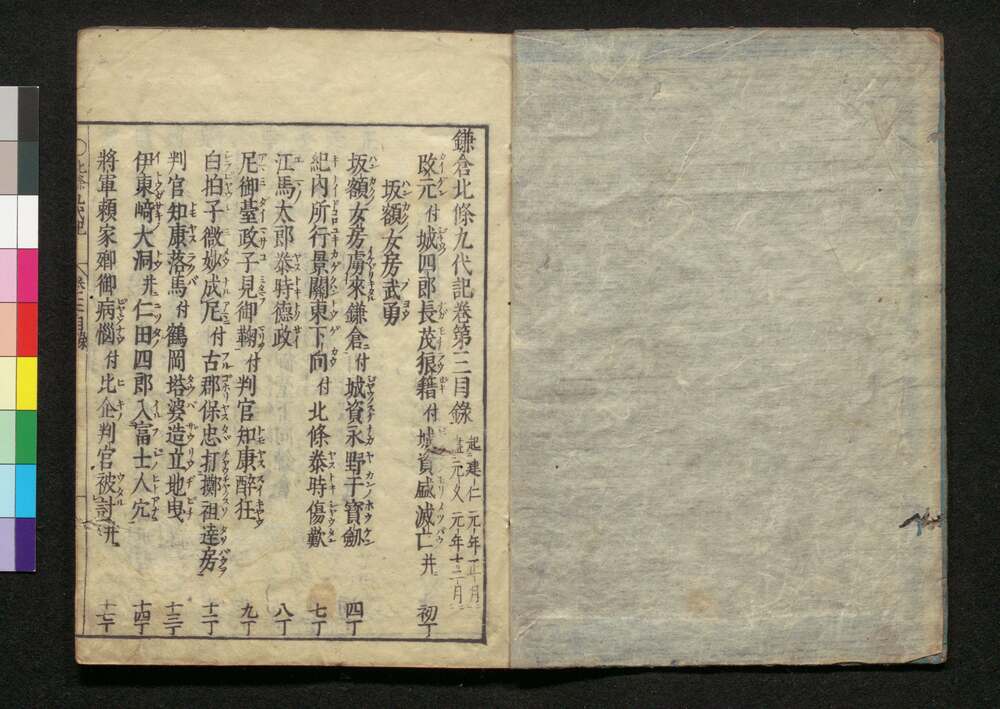 鎌倉北條九代記巻第三目錄 起建仁元年正月 盡元久元年十二月
改元付城四郎長茂狼籍付城資盛滅亡并 初丁
坂額女房武勇
坂額女房虜來鎌倉付城資永野干寳劔 四丁
紀内所行景關東下向付北條泰時傷歎 七丁
江馬太郎泰時德政 八丁
尼御臺政子見御鞠付判官知康醉狂 九丁
白拍子微妙成尼付古郡保忠打擲祖達房 十二丁
判官知康落馬付鶴岡塔婆造立地曳 十三丁
伊東﨑大洞并仁田四郎入富士人穴 十四丁
將軍頼家卿御病惱付比企判官被討并 十七丁